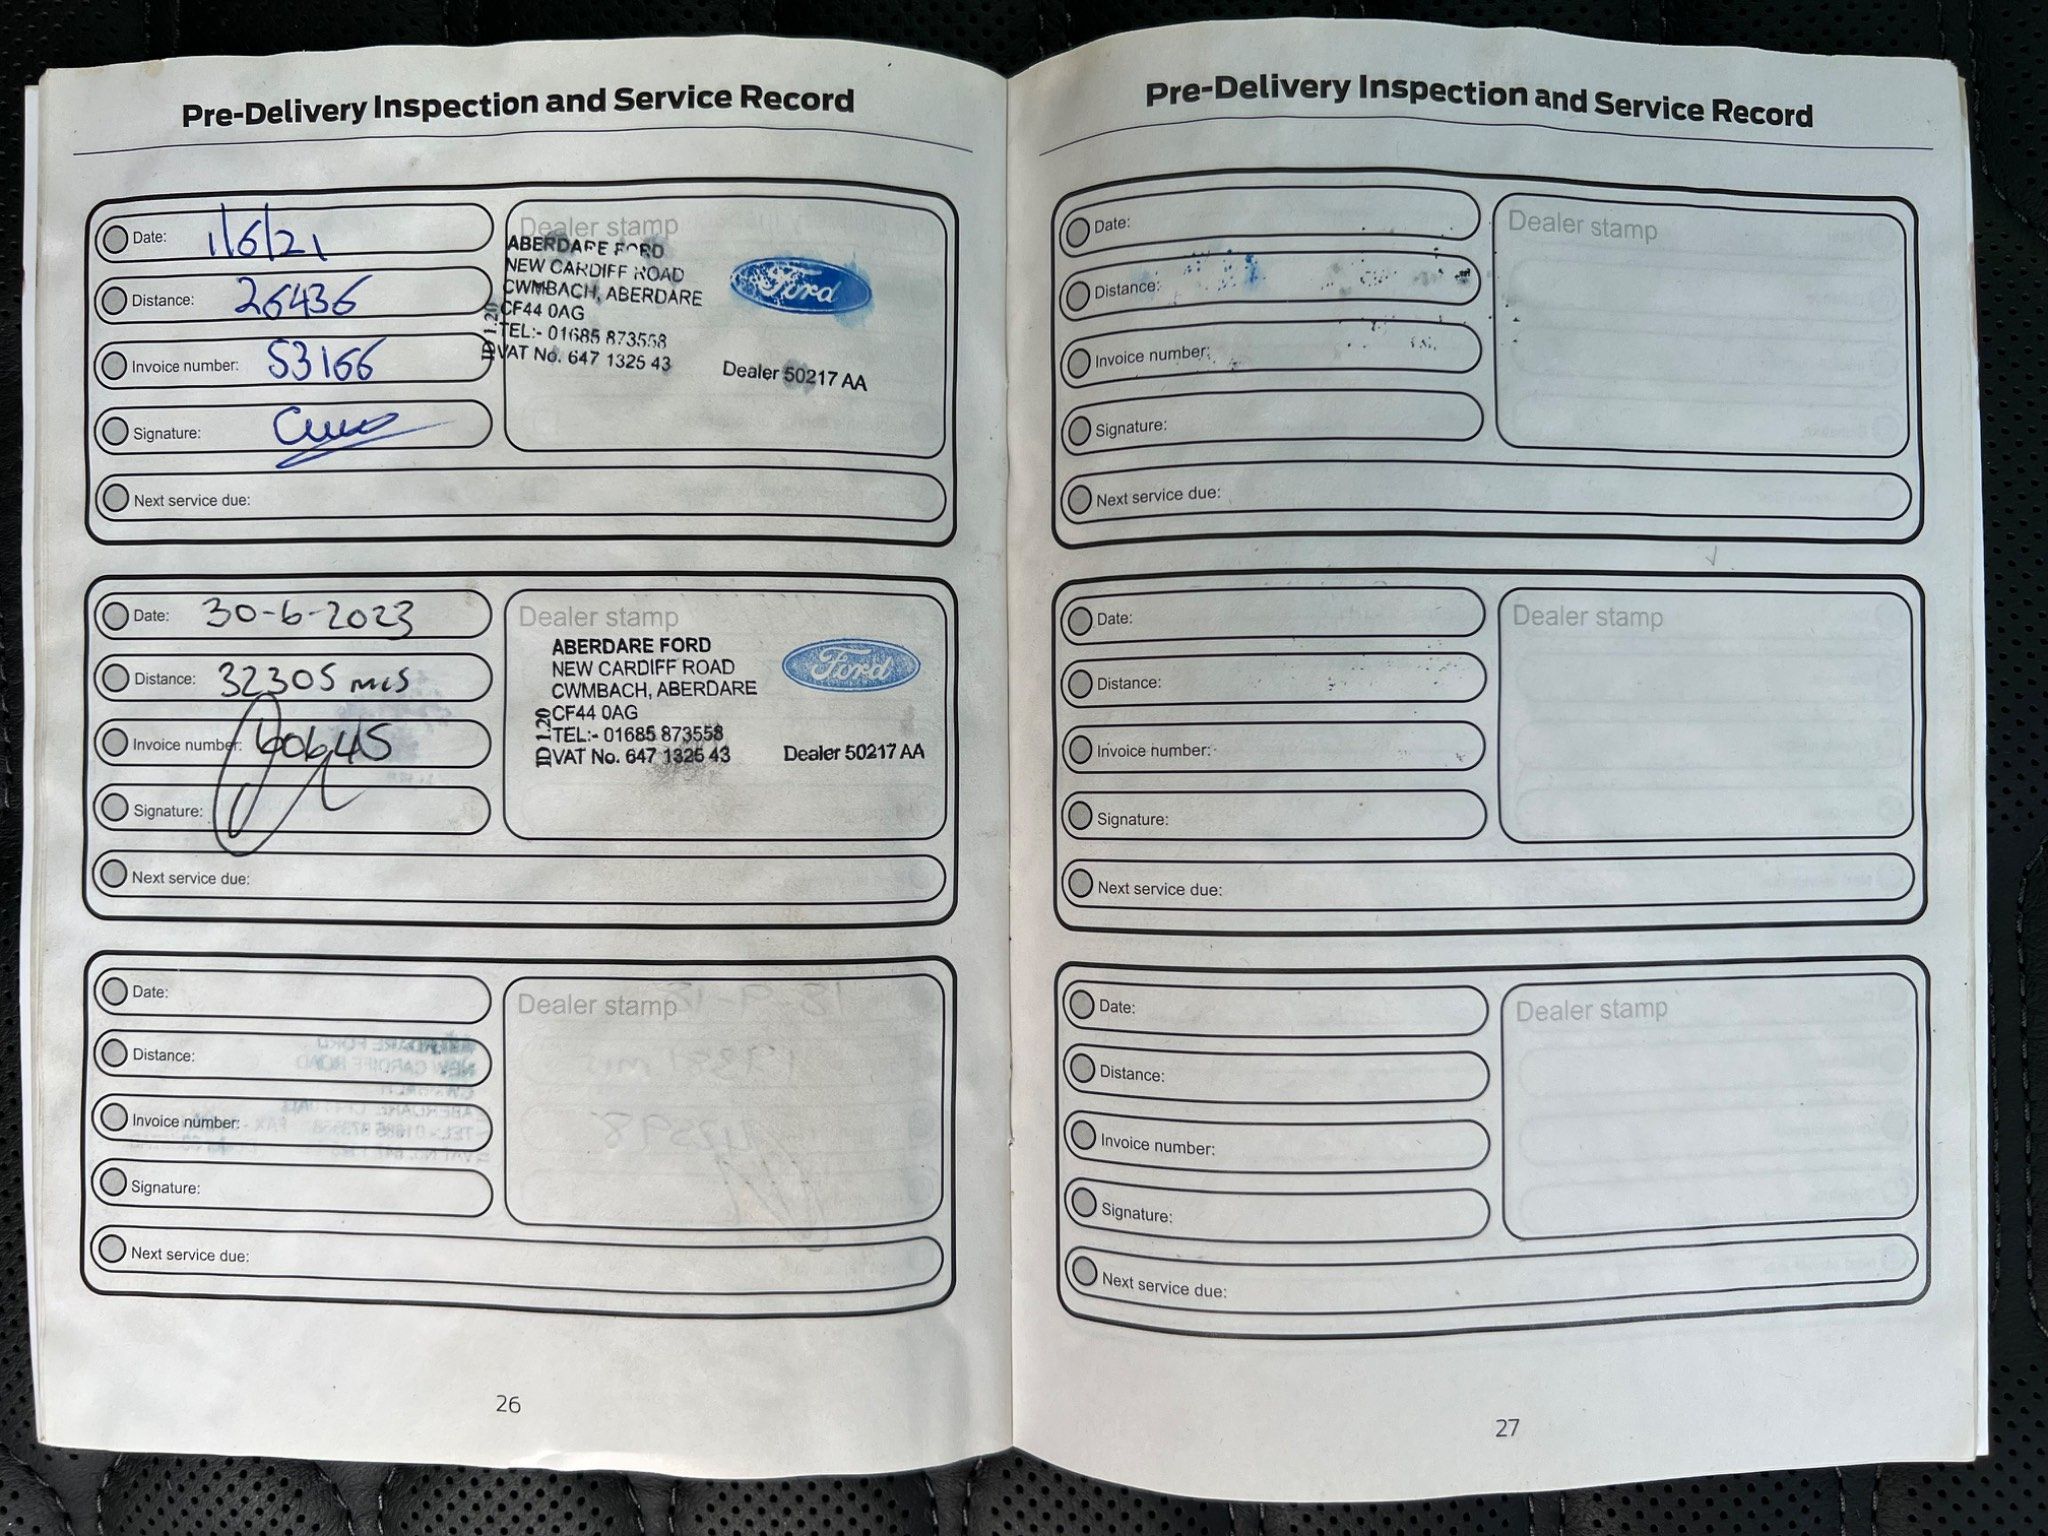 Pre-Delivery Inspection and Service Record
Date: 1/6/21
Distance: 26436
Invoice number: 53166
Signature:
Next service due:
Dealer stamp
ABERDARE FORD
NEW CARDIFF ROAD
CWMBACH, ABERDARE
CF44 0AG
TEL:- 01685 873558
VAT No. 647 1325 43
ID 1.20
Ford
Dealer 50217 AA
Date: 30-6-2023
Distance: 32305 mls
Invoice number: 60645
Signature:
Next service due:
Dealer stamp
ABERDARE FORD
NEW CARDIFF ROAD
CWMBACH, ABERDARE
CF44 0AG
TEL:- 01685 873558
VAT No. 647 1325 43
ID 1.20
Ford
Dealer 50217 AA
Date:
Distance:
Invoice number:
Signature:
Next service due:
Dealer stamp
26
Pre-Delivery Inspection and Service Record
Date:
Distance:
Invoice number:
Signature:
Next service due:
Dealer stamp
Date:
Distance:
Invoice number:
Signature:
Next service due:
Dealer stamp
Date:
Distance:
Invoice number:
Signature:
Next service due:
Dealer stamp
27